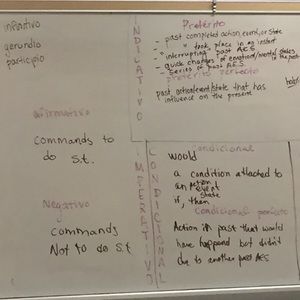 infinitivo
gerundio
participio
INDICATIVO
Pretérito
- past completed action, event, or state
- " took place in an instant
- interrupting past A.E.S.
- quick changes of emotional/mental states in the past
- series of past A.E.S.
pretérito perfecto
past action/event/state that has
influence on the present
afirmativo
commands to
do s.t.
Negativo
commands
Not to do s.t
IMPERATIVO
CONDICIONAL
condicional
would
a condition attached to
an action
event
state
if, then
condicional perfecto
Action in past that would
have happend but didn't
due to another past AES